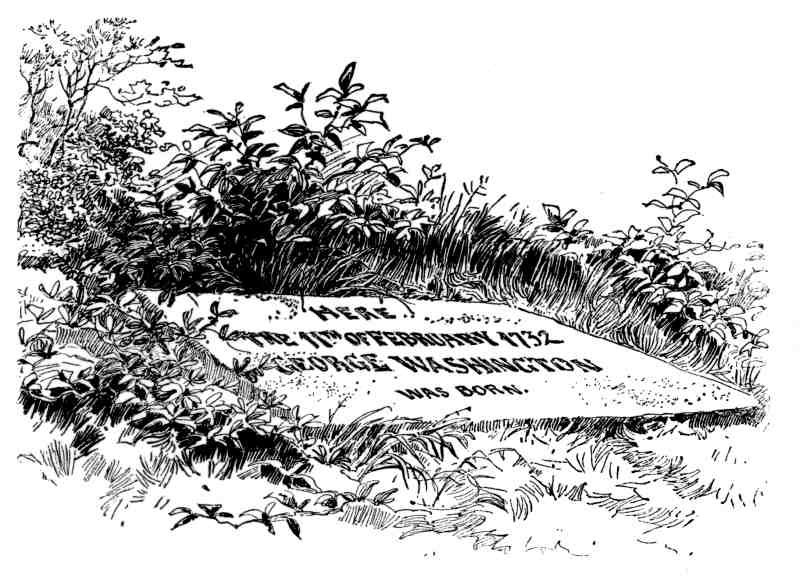 HERE
THE 11TH OF FEBRUARY, 1732
GEORGE WASHINGTON
WAS BORN.